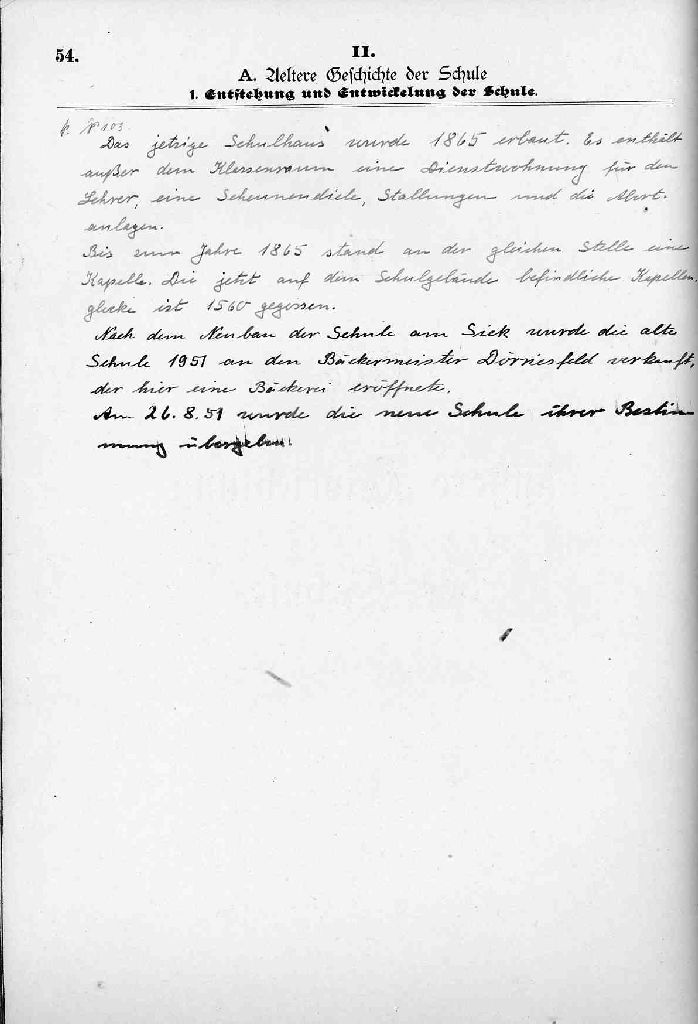 54.
II.
A. Aeltere Geschichte der Schule
1. Entstehung und Entwickelung der Schule.
103
Das jetzige Schulhaus wurde 1865 erbaut. Es enthält
außer dem Klassenraum eine Dienstwohnung für den
Lehrer, eine Scheunendiele, Stallungen und die Abort-
anlagen.
Bis zum Jahre 1865 stand an der gleichen Stelle eine
Kapelle. Die jetzt auf dem Schulgebäude befindliche Kapellen
glocke ist 1560 gegossen.
Nach dem Neubau der Schule am Siek wurde die alte
Schule 1951 an den Bäckermeister Dörriesfeld verkauft,
der hier eine Bäckerei eröffnete.
Am 26.8.51 wurde die neue Schule ihrer Bestim
mung übergeben.